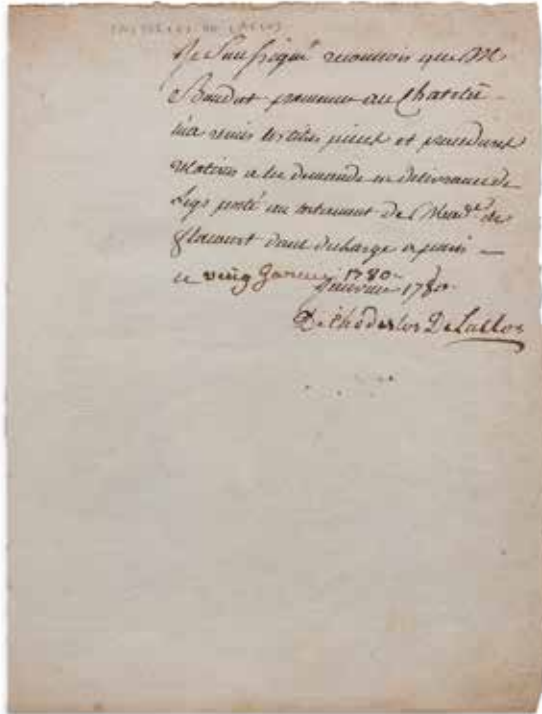 CHODERLOS DE LACLOS
Je Soussigné reconnois que Me
Baudot procureur au Chatelet
m'a remis les titres pieces et procedures
relatives a la demande en delivrance de
Legs porté au testament de Made. de
flacourt dont decharge a paris —
ce vingt Janvier 1780
Janvier 1780
De Choderlos De Laclos